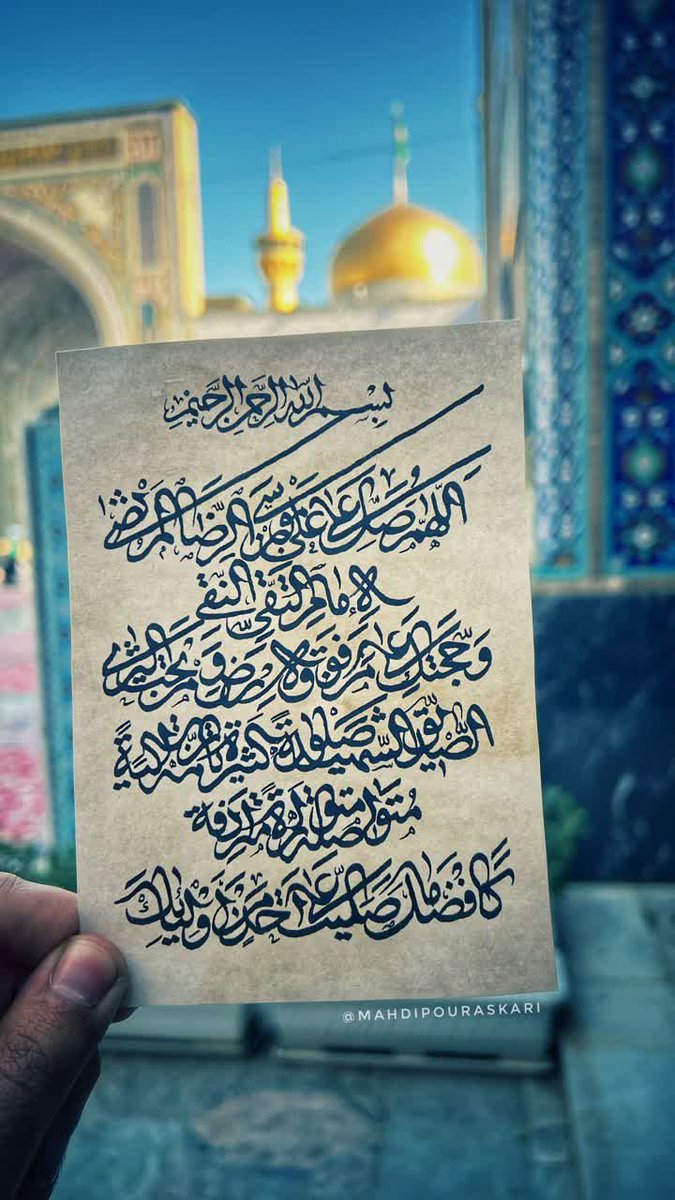 بِسْمِ اللهِ الرَّحْمنِ الرَّحِیمِ
اَللّهُمَّ صَلِّ عَلی عَلِیِّ بْنِ مُوسَی الرِّضَا المُرْتَضی
الاِمامِ التَّقِیِّ النَّقیِ
وَ حُجَّتِکَ عَلی مَنْ فَوْقَ الاَرْضِ وَ مَنْ تَحْتَ الثَّری
الصِّدّیقِ الشَّهیدِ صَلوةً کَثیرَةً تامَّةً زاکِیَةً
مُتَواصِلَةً مُتَواتِرَةً مُتَرادِفَةً
کَاَفْضَلِ ما صَلَّیْتَ عَلی اَحَدٍ مِنْ اَوْلِیائِکَ
@MAHDIPOURASKARI